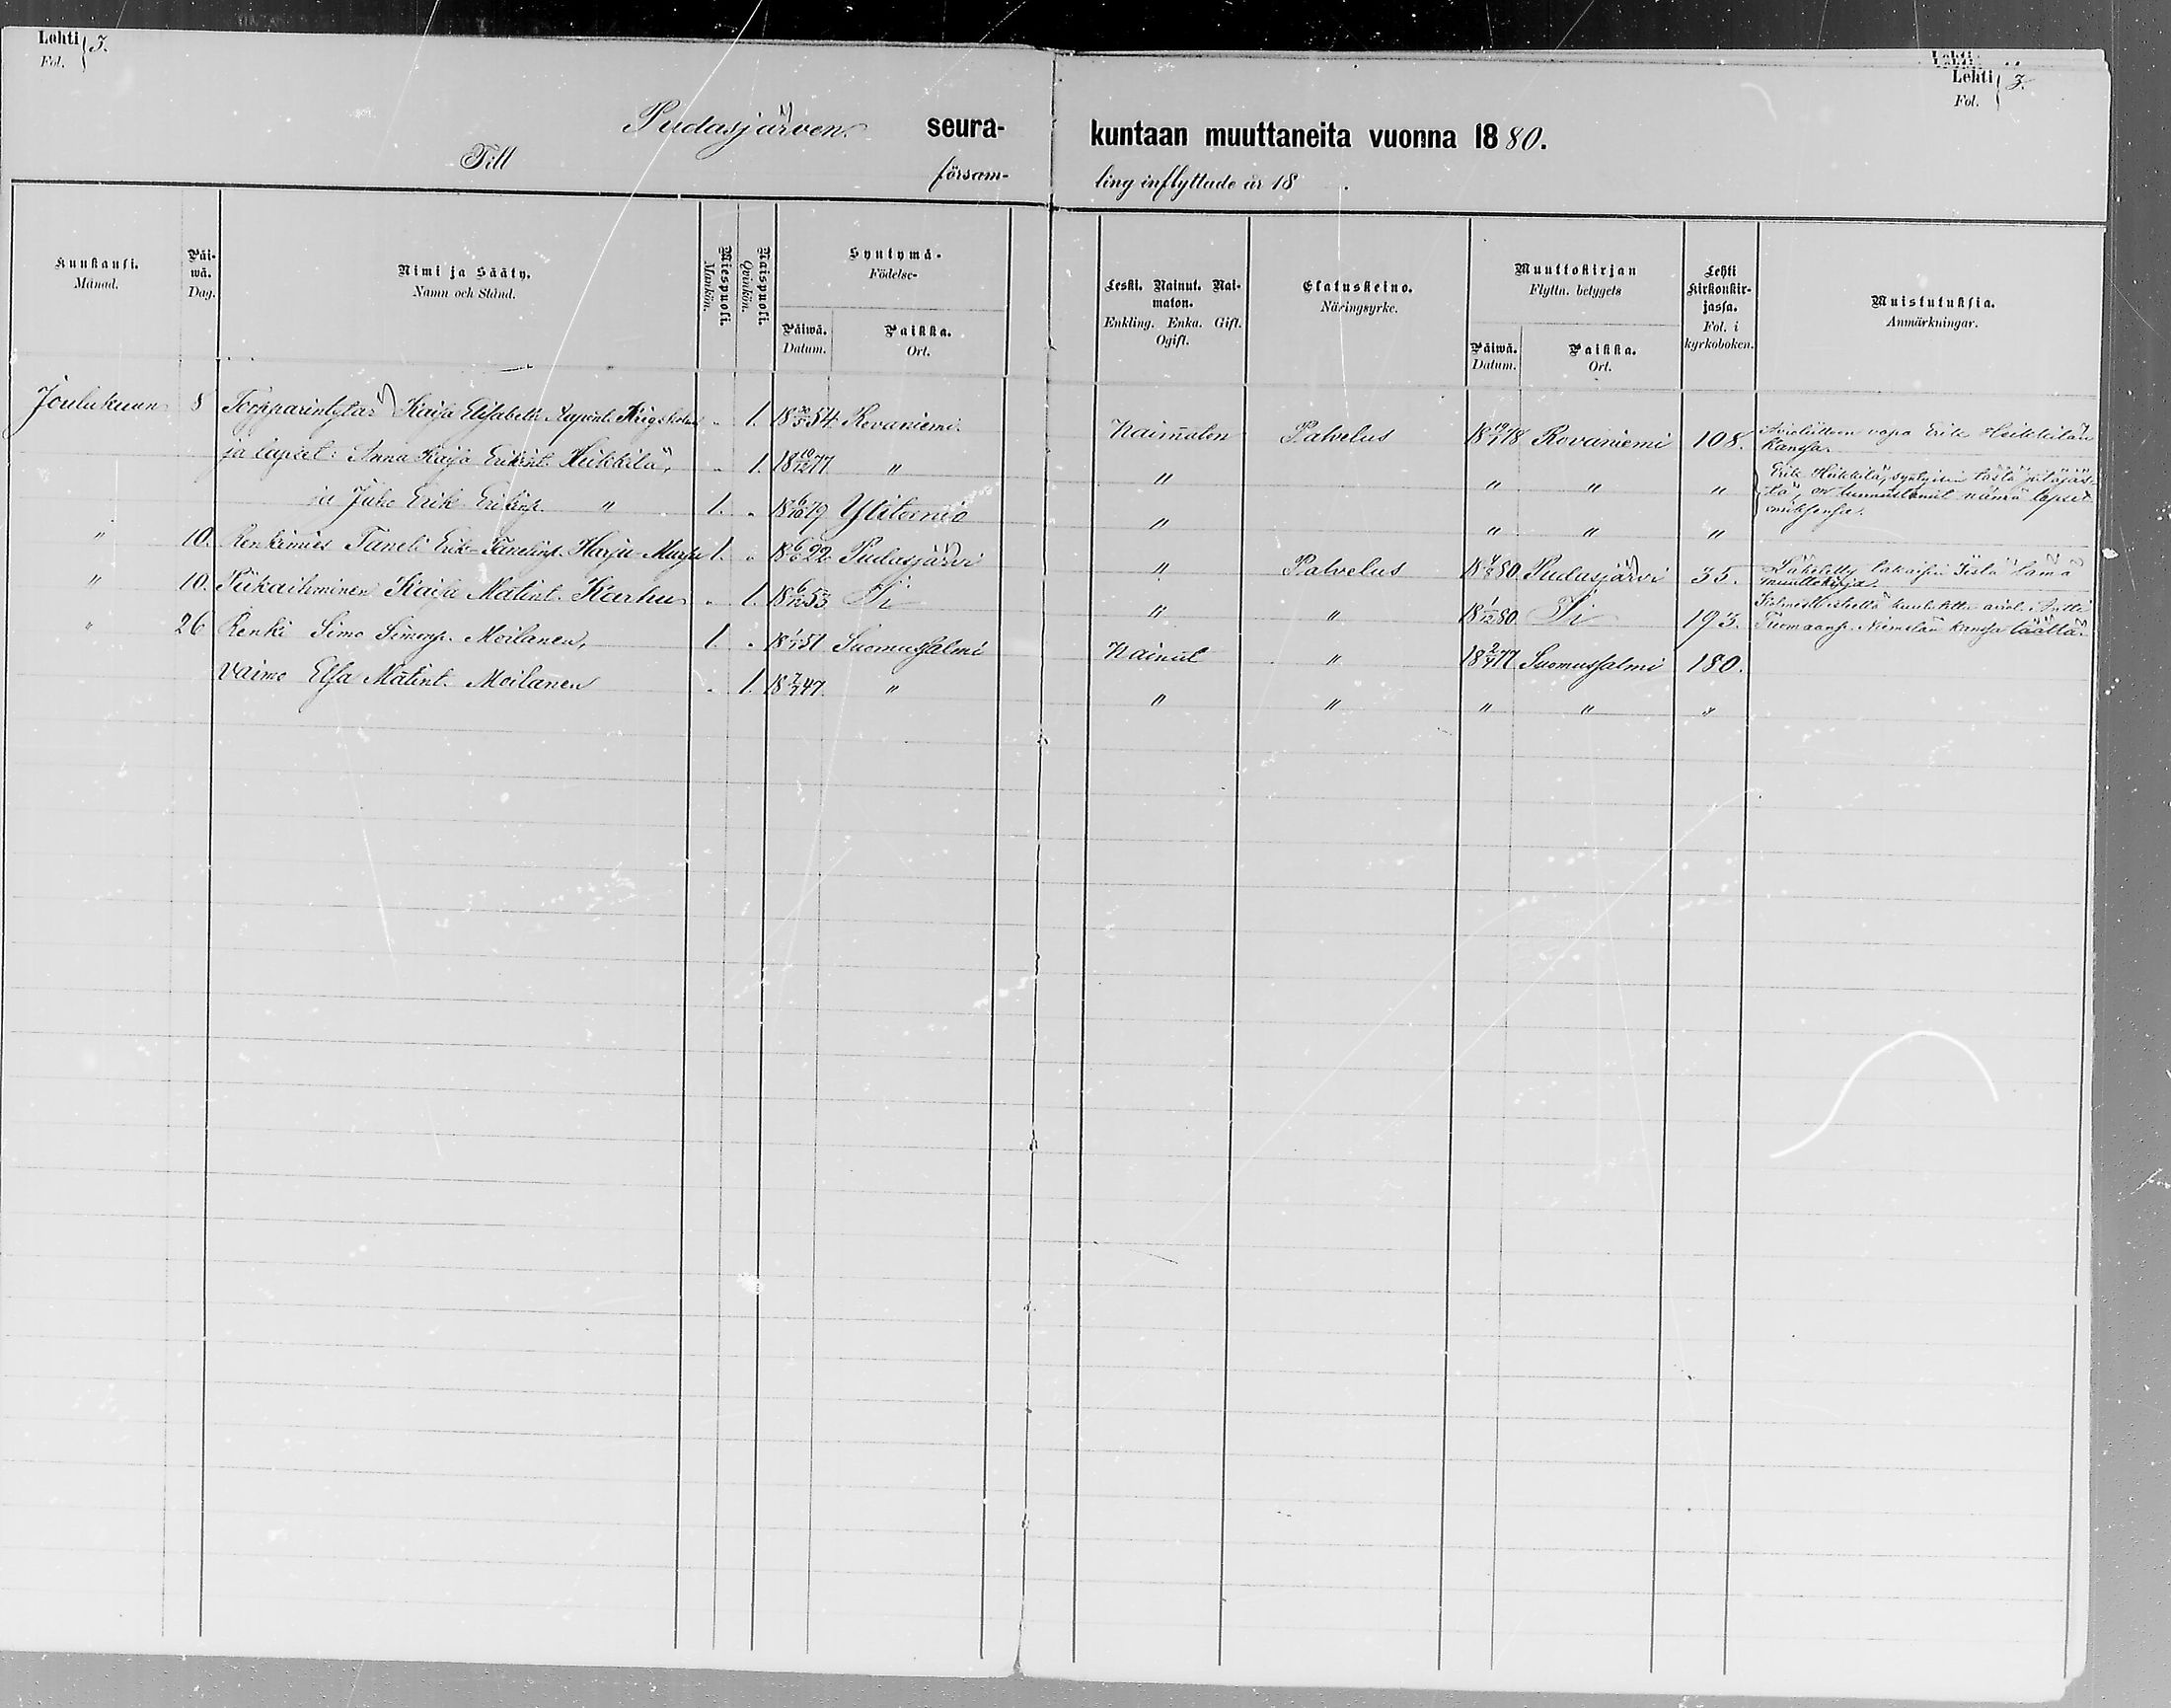 Lehti } 3.
Fol.
Lehti } 3.
Fol.
Pudasjärven seura- kuntaan muuttaneita vuonna 1880.
Till försam- ling inflyttade år 18 .
Kuukausi. Månad.
Päiwä. Dag.
Nimi ja Sääty. Namn och Stånd.
Miespuoli. Mankön.
Naispuoli. Qvinkön.
Syntymä- Födelse-
Päiwä. Datum.
Paikka. Ort.
Leski. Nainut. Naimaton. Enkling. Enka. Gift. Ogift.
Elatuskeino. Näringsyrke.
Muuttokirjan Flyttn. betygets
Päiwä. Datum.
Paikka. Ort.
Lehti Kirkonkirjassa. Fol. i kyrkoboken.
Muistutuksia. Anmärkningar.
Joulukuun 8 Torpparintytär Kaisa Elisabeth 1. 18 54 Rovaniemi. Naimaton Palvelus 18 78 Rovaniemi 108. Avioliitoon vapa Erik Heikkilän kanssa.
ja lapset: Anna Kaisa Erikint. Heikkilä, „ 1. 18 10/12 77 „ „ „ „ „ Erik Heikkilä, syntyisin tästä pitäjäs-
ja Juho Erik Erikinp. „ 1. „ 18 6/10 79 Ylitornio „ „ „ „ tä, on tunnustanut nämä lapset omiksensa.
„ 10. Renkimies Taneli Erik Tanelinp. Harju-Marja 1. „ 18 22 Pudasjärvi „ Palvelus 18 80 Pudasjärvi 35. Lähetetty takaisin Iistä tämä muuttokirja.
„ 10. Piikaihminen Kaisa Matint. Karhu „ 1. 18 6/12 53 Ii „ „ 18 1/12 80 Ii 193. Kolmesti kuulutettu aviol. Antti Tuomaanp. Niemelän kanssa täällä.
„ 26 Renki Simo Simonp. Moilanen, 1. „ 18 51 Suomussalmi Nainut „ 18 77 Suomussalmi 180.
vaimo Elsa Matint. Moilanen „ 1. 18 47 „ „ „ „ „ „